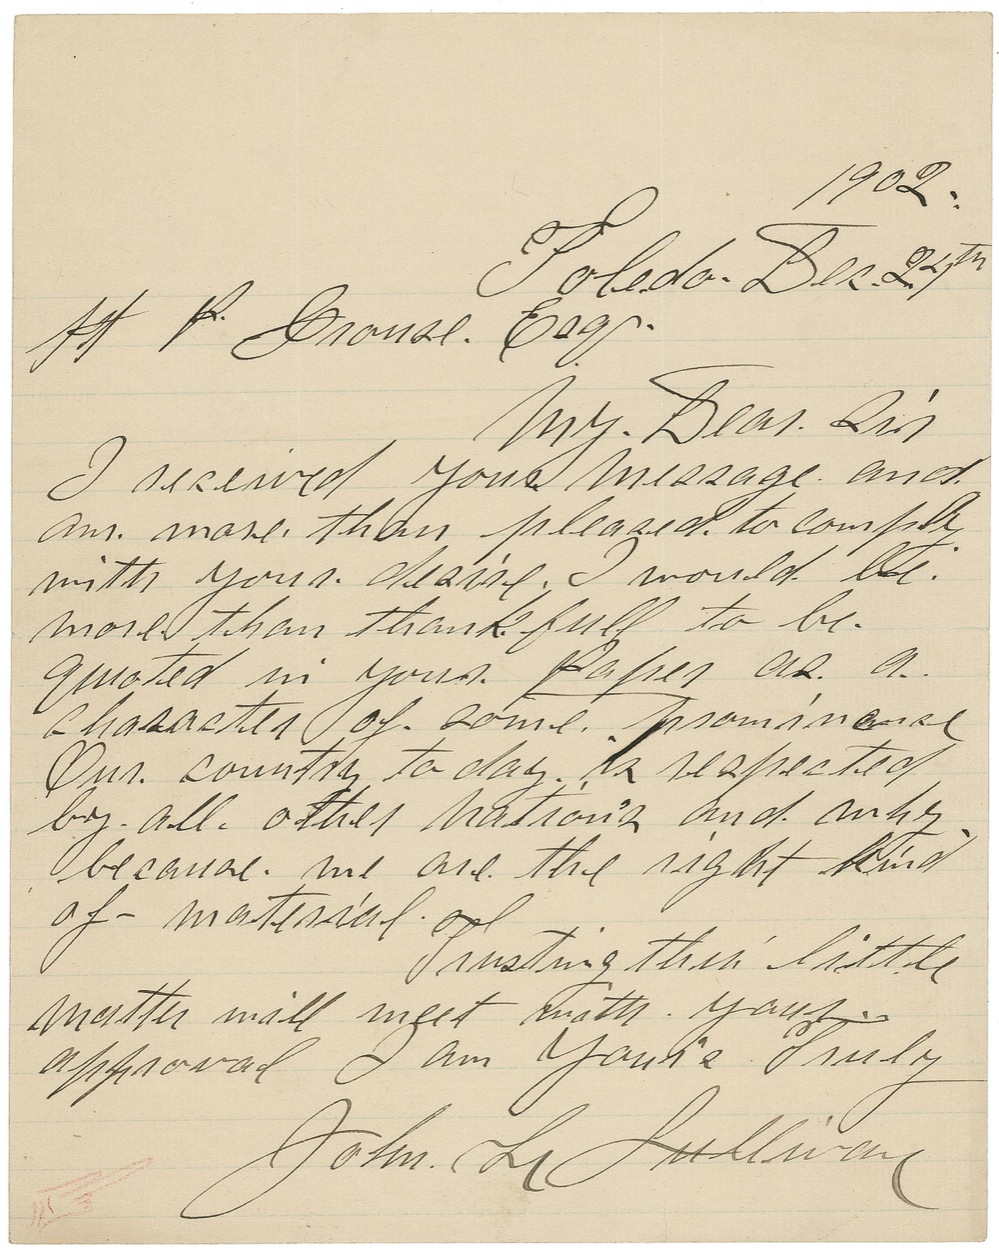 1902.
Toledo. Dec. 24th
H P. Crouse. Esqr.
My. Dear. Sir
I received your message. and
am. more. than pleased. to comply
with your. desire. I would be.
more. than thankfull to be.
quoted in your. Paper as. a.
character of. some. prominense
Our. country to day. is respected
by. all. other Nation's and. why.
because. we are. the right kind
of - material.
Trusting this little
matter will meet with. your.
approval I am Your's Truly
John. L Sullivan